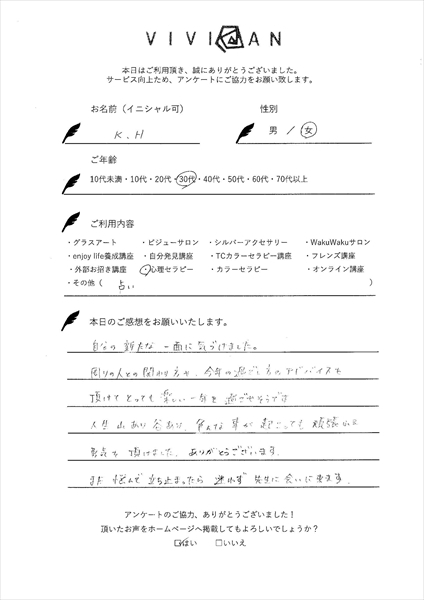 VIVIAN
本日はご利用頂き、誠にありがとうございました。
サービス向上ため、アンケートにご協力をお願い致します。
お名前（イニシャル可） 性別
K.H 男 / 女
ご年齢
10代未満・10代・20代・30代・40代・50代・60代・70代以上
ご利用内容
・グラスアート ・ビジューサロン ・シルバーアクセサリー ・WakuWakuサロン
・enjoy life養成講座 ・自分発見講座 ・TCカラーセラピー講座 ・フレンズ講座
・外部お招き講座 ・心理セラピー ・カラーセラピー ・オンライン講座
・その他（ 占い ）
本日のご感想をお願いいたします。
自分の新たな一面に気づけました。
周りの人との関わり方や、今年の過ごし方のアドバイスを
頂けてとっても楽しい一年を過ごせそうです
人生山あり谷あり、色んな事が起こっても頑張れる
頂けました。ありがとうございます。
また悩んで立ち止まったら迷わず先生に会いに来ます。
アンケートのご協力、ありがとうございました！
頂いたお声をホームページへ掲載してもよろしいでしょうか？
☑はい □いいえ